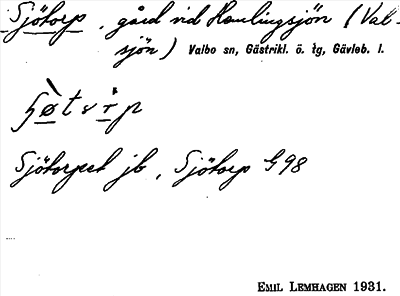 Sjötorp, gård vid Hemlingsjön (Val-
sjön) Valbo sn, Gästrikl. ö. tg, Gävleb. l.
Sjötorpet jb, Sjötorp G98
EMIL LEMHAGEN 1931.